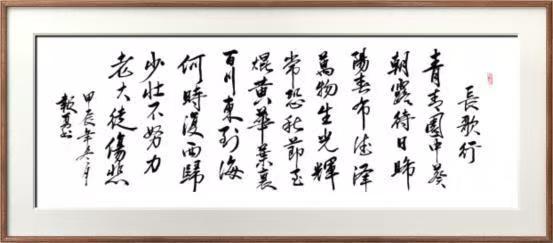 長歌行
青青園中葵
朝露待日晞
陽春布德澤
萬物生光輝
常恐秋節至
焜黃華葉衰
百川東到海
何時復西歸
少壯不努力
老大徒傷悲
甲辰年